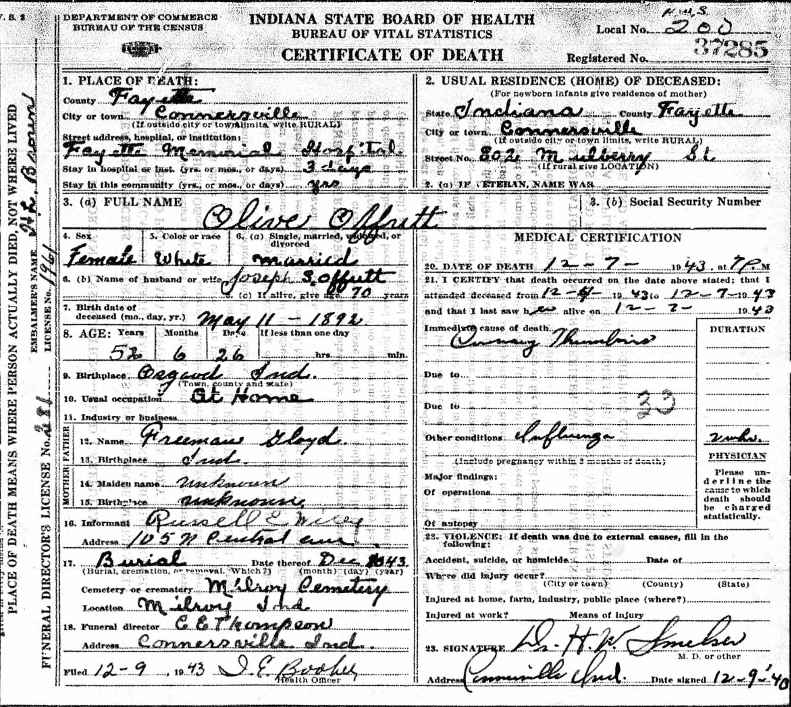 V. S. 2
DEPARTMENT OF COMMERCE
BUREAU OF THE CENSUS
INDIANA STATE BOARD OF HEALTH
BUREAU OF VITAL STATISTICS
CERTIFICATE OF DEATH
H.W.S.
Local No. 200
Registered No. 37285
PLACE OF DEATH MEANS WHERE PERSON ACTUALLY DIED, NOT WHERE LIVED
EMBALMER'S NAME Brown
LICENSE No. 1961
FUNERAL DIRECTOR'S LICENSE No. 281
1. PLACE OF DEATH:
County Fayette
City or town Connersville
(If outside city or town limits, write RURAL)
Street address, hospital, or institution:
Fayette Memorial Hospital
Stay in hospital or inst. (yrs. or mos., or days) 3 days
Stay in this community (yrs. or mos., or days) yrs
2. USUAL RESIDENCE (HOME) OF DECEASED:
(For newborn infants give residence of mother)
State Indiana County Fayette
City or town Connersville
(If outside city or town limits, write RURAL)
Street No. 802 Mulberry St
(If rural give LOCATION)
2. (a) IF VETERAN, NAME WAR
3. (a) FULL NAME Olive Offutt
3. (b) Social Security Number
4. Sex Female
5. Color or race White
6. (a) Single, married, widowed, or divorced married
6. (b) Name of husband or wife Joseph S. Offutt
(c) If alive, give age 70 years
7. Birth date of
deceased (mo., day, yr.) May 11 - 1892
8. AGE: Years Months Days If less than one day
52 6 26 hrs. min.
9. Birthplace Osgood Ind.
(Town, county and state)
10. Usual occupation At Home
11. Industry or business
FATHER
12. Name Freeman Gloyd
13. Birthplace Ind.
MOTHER
14. Maiden name unknown
15. Birthplace unknown
16. Informant Russell E
Address 105 N Central ave
17. Burial Date thereof Dec 1943
(Burial, cremation, or removal. Which?) (month) (day) (year)
Cemetery or crematory Milroy Cemetery
Location Milroy Ind
18. Funeral director E E Thompson
Address Connersville Ind.
Filed 12-9, 1943
Health Officer
MEDICAL CERTIFICATION
20. DATE OF DEATH 12 - 7 - 1943, at 7 P. M
21. I CERTIFY that death occurred on the date above stated; that I
attended deceased from 12-4 1943 to 12-7-1943
and that I last saw her alive on 12-7- 1943
Immediate cause of death
Coronary Thrombosis
DURATION
Due to
Due to
33
Other conditions Influenza 2 wks.
(Include pregnancy within 3 months of death)
PHYSICIAN
Please underline the cause to which death should be charged statistically.
Major findings:
Of operations
Of autopsy
22. VIOLENCE: If death was due to external causes, fill in the
following:
Accident, suicide, or homicide Date of
Where did injury occur?
(City or town) (County) (State)
Injured at home, farm, industry, public place (where?)
Injured at work? Means of injury
23. SIGNATURE Dr. H. W. Smelser
M. D. or other
Address Connersville Ind. Date signed 12-9-43